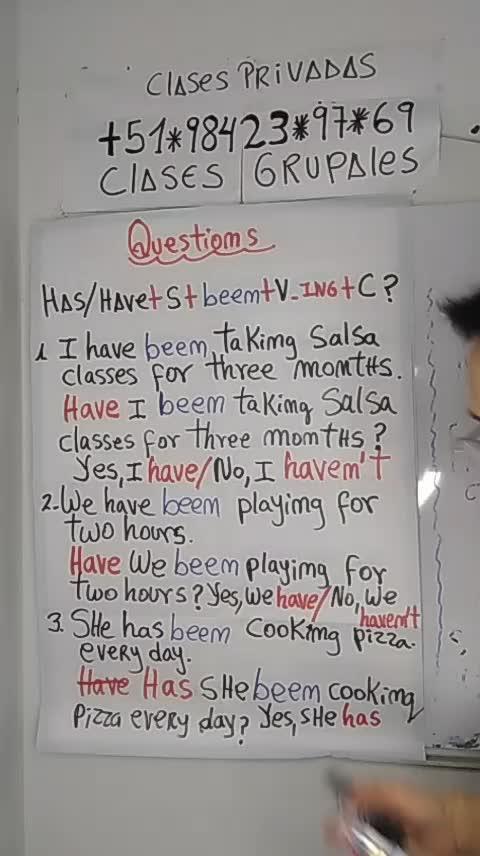 CLASES PRIVADAS
+51*98423*97*69
CLASES GRUPALES
Questions
HAS/HAVE+S+been+V-ING+C?
1. I have been taking Salsa
classes for three months.
Have I been taking Salsa
classes for three months?
Yes, I have/No, I haven't
2. We have been playing for
two hours.
Have We been playing for
two hours? Yes, we have/No, We
haven't
3. SHe has been cooking pizza.
every day.
Have Has SHe been cooking
Pizza every day? Yes, SHe has